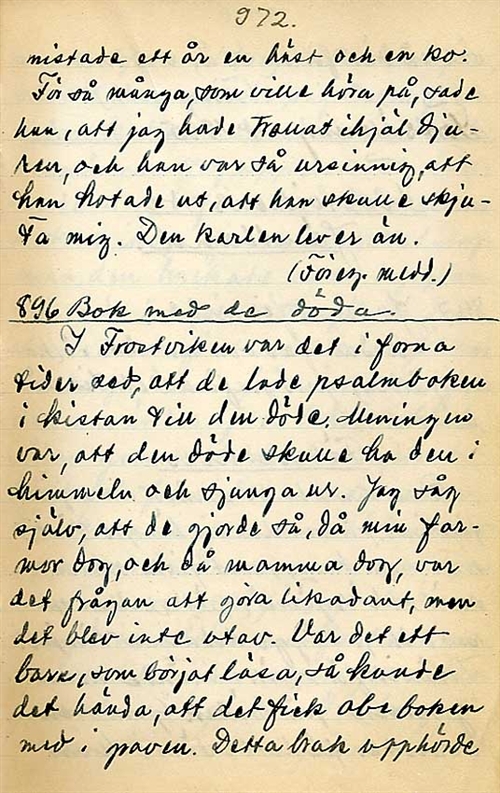 972.
mistade ett år en häst och en ko.
För så många, som ville höra på, sade
han, att jag hade trollat ihjäl dju-
ren, och han var så ursinnig, att
han hotade ut, att han skulle skju-
ta mig. Den karlen lever än.
(Föreg. medd.)
896 Bok med de döda.
I Frostviken var det i forna
tider sed, att de lade psalmboken
i kistan till den döde. Meningen
var, att den döde skulle ha den i
himmeln och sjunga ur. Jag såg
själv, att de gjorde så, då min far-
mor dog, och då mamma dog, var
det frågan att göra likadant, men
det blev inte utav. Var det ett
barn, som börjat läsa, så kunde
det hända, att det fick abc boken
med i graven. Detta bruk upphörde